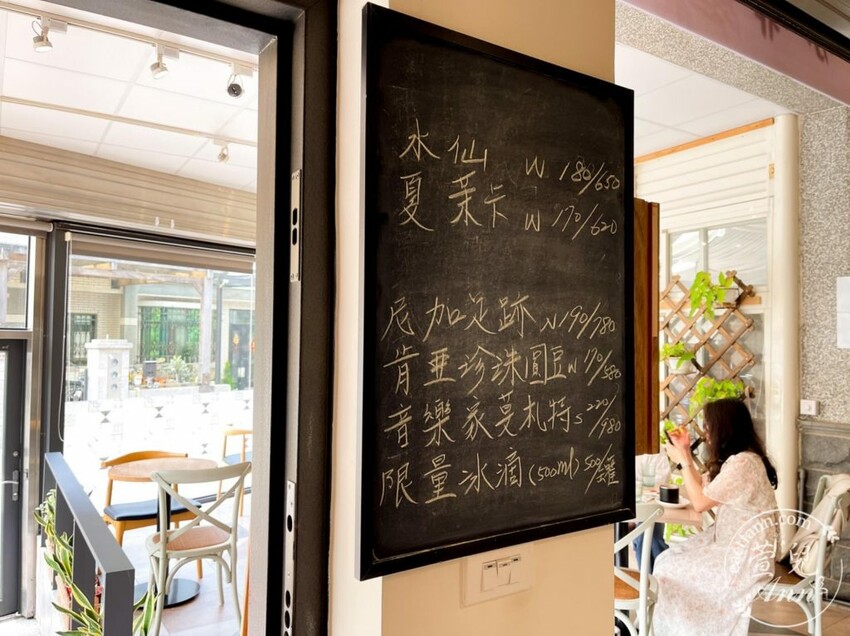 水仙 W 180/650
夏茉卡 W 170/620
尼加足跡 W 190/780
肯亞珍珠圓豆 W 170/580
音樂家莫札特 S 220/980
限量冰滴(500ml) 500/罐
Ann